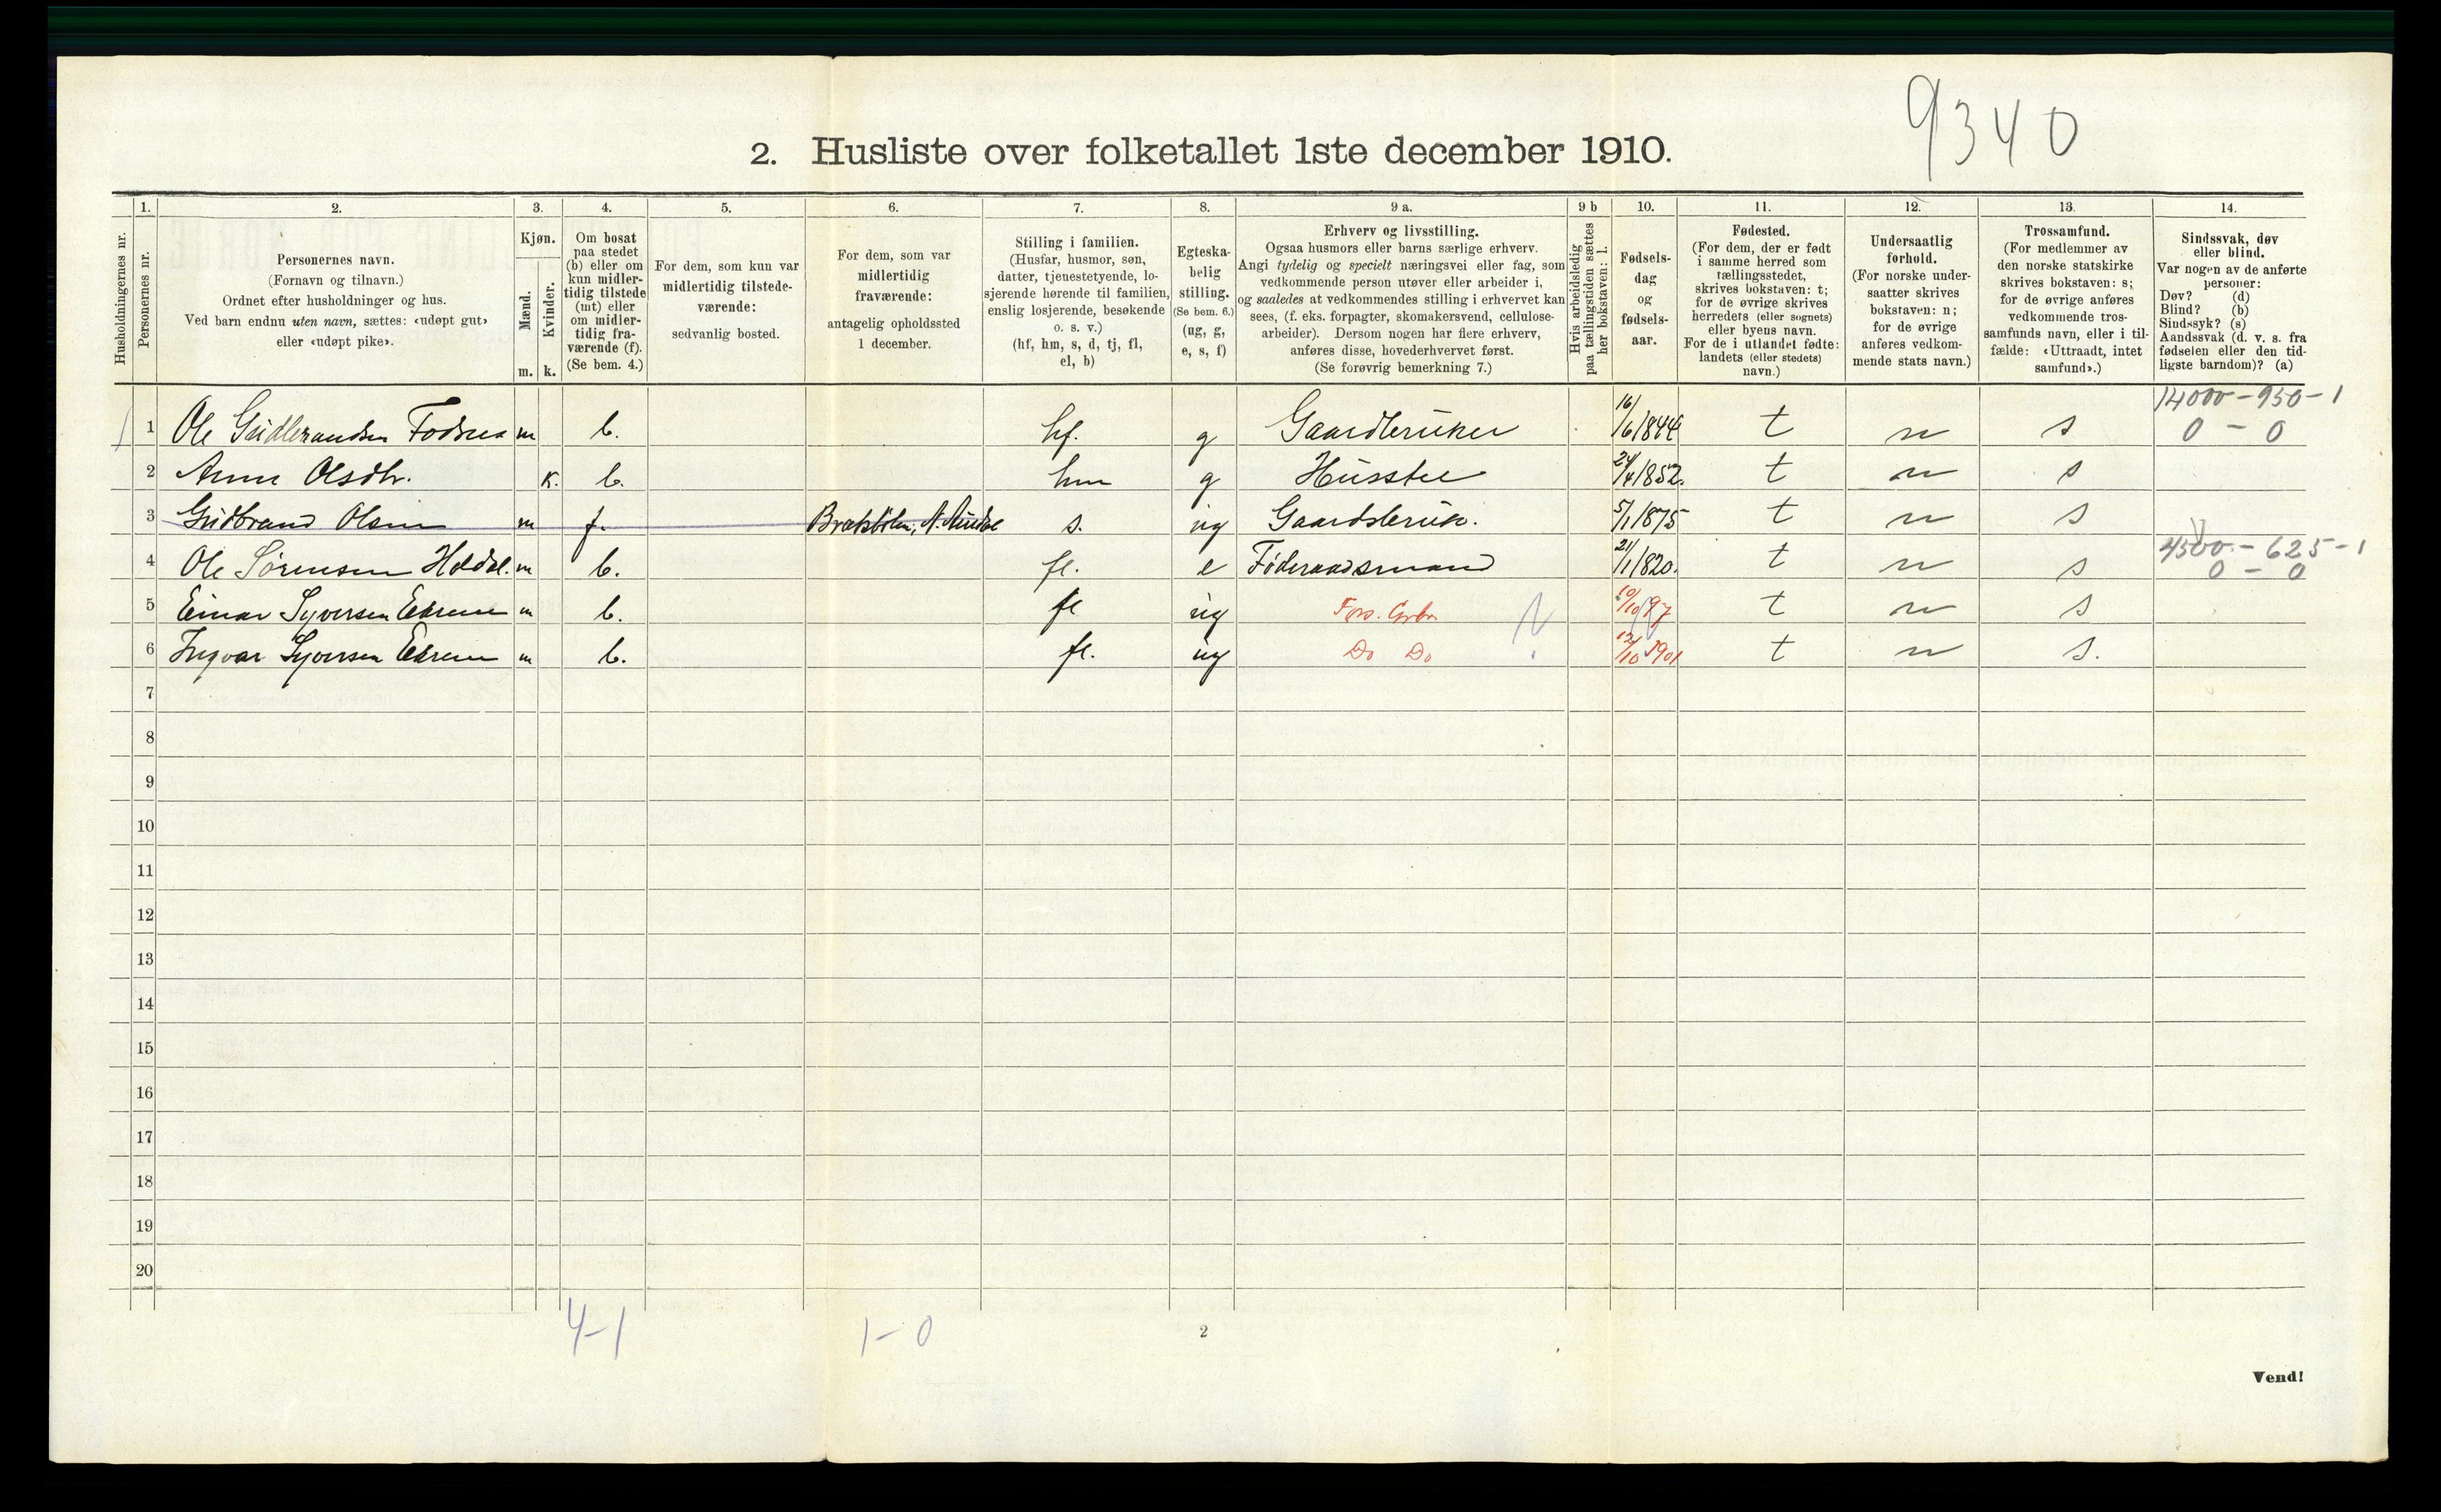 9340
2. Husliste over folketallet 1ste december 1910.
1. 2. 3. 4. 5. 6. 7. 8. 9 a. 9 b 10. 11. 12. 13. 14.
Husholdningernes nr.
Personernes nr.
Personernes navn.
(Fornavn og tilnavn.)
Ordnet efter husholdninger og hus.
Ved barn endnu uten navn, sættes: «udøpt gut»
eller «udøpt pike».
Kjøn.
Mænd.
Kvinder.
m. k.
Om bosat
paa stedet
(b) eller om
kun midler-
tidig tilstede
(mt) eller
om midler-
tidig fra-
værende (f).
(Se bem. 4.)
For dem, som kun var
midlertidig tilstede-
værende:
sedvanlig bosted.
For dem, som var
midlertidig
fraværende:
antagelig opholdssted
1 december.
Stilling i familien.
(Husfar, husmor, søn,
datter, tjenestetyende, lo-
sjerende hørende til familien,
enslig losjerende, besøkende
o. s. v.)
(hf, hm, s, d, tj, fl,
el, b)
Egteska-
belig
stilling.
(Se bem. 6.)
(ug, g,
e, s, f)
Erhverv og livsstilling.
Ogsaa husmors eller barns særlige erhverv.
Angi tydelig og specielt næringsvei eller fag, som
vedkommende person utøver eller arbeider i,
og saaledes at vedkommendes stilling i erhvervet kan
sees, (f. eks. forpagter, skomakersvend, cellulose-
arbeider). Dersom nogen har flere erhverv,
anføres disse, hovederhvervet først.
(Se forøvrig bemerkning 7.)
Hvis arbeidsledig
paa tællingstiden sættes
her bokstaven: l.
Fødsels-
dag
og
fødsels-
aar.
Fødested.
(For dem, der er født
i samme herred som
tællingsstedet,
skrives bokstaven: t;
for de øvrige skrives
herredets (eller sognets)
eller byens navn.
For de i utlandet fødte:
landets (eller stedets)
navn.)
Undersaatlig
forhold.
(For norske under-
saatter skrives
bokstaven: n;
for de øvrige
anføres vedkom-
mende stats navn.)
Trossamfund.
(For medlemmer av
den norske statskirke
skrives bokstaven: s;
for de øvrige anføres
vedkommende tros-
samfunds navn, eller i til-
fælde: «Uttraadt, intet
samfund».)
Sindssvak, døv
eller blind.
Var nogen av de anførte
personer:
Døv? (d)
Blind? (b)
Sindssyk? (s)
Aandssvak (d. v. s. fra
fødselen eller den tid-
ligste barndom)? (a)
14000 - 950 - 1
1 Ole Gudbrandsen Fodnes m b. hf. g Gaardbruker 16/6 1844 t n s 0 - 0
2 Anne Olsdtr. k. b. hm g Husstel 24/4 1852. t n s
3 Gudbrand Olsen m f. s. ug Gaardsbruk. 5/1 1875 t n s
4500 - 625 - 1
4 Ole Sørensen m b. fl. e Føderaadsmand 21/1 1820. t n s 0 - 0
5 Einar Syversen m b. fl ug Fors. 10/10 97 t n s
6 Ingvar Syversen m b. fl. ug Do Do 12/10 1901 t n s.
7
8
9
10
11
12
13
14
15
16
17
18
19
20
4-1 1-0 2
Vend!